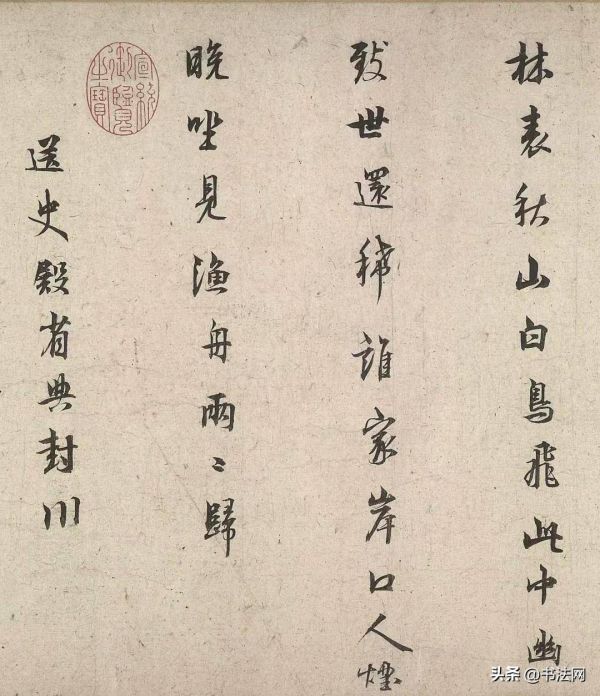 林表秋山白鳥飛此中幽
致世還稀誰家岸口人煙
晚坐見漁舟兩〻歸
宣統御覽之寶
送史殿省典封川
头条 @书法网